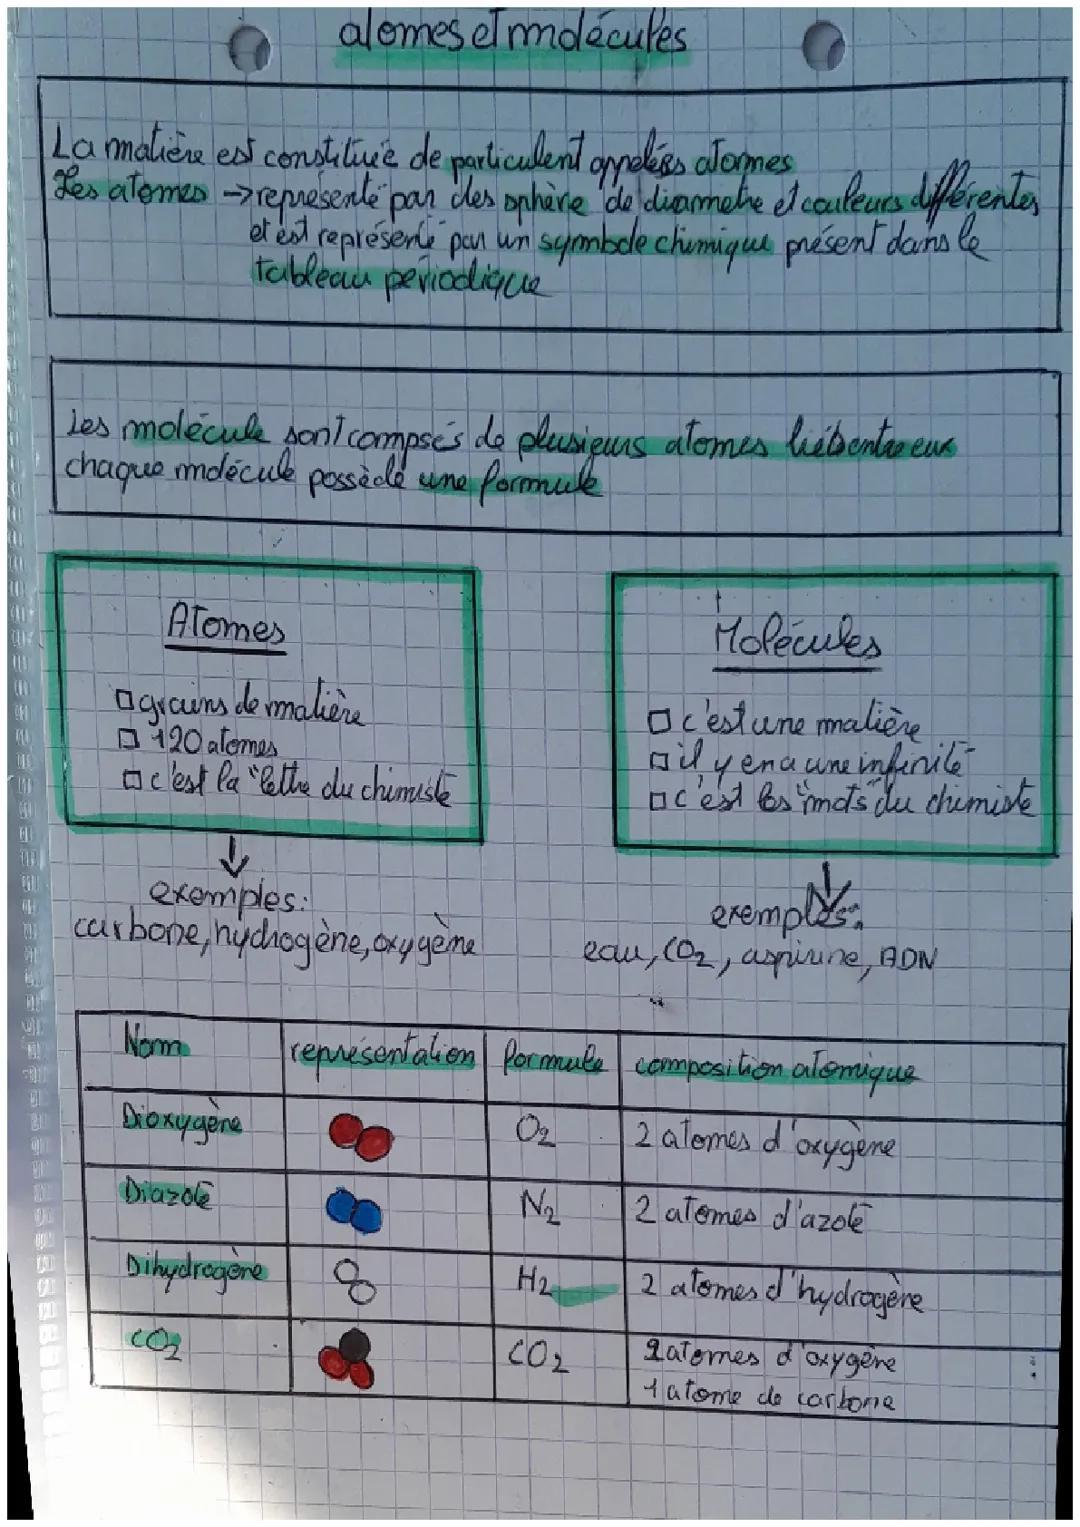 atomes et molécules
La matière est constituée de particulent appelées atomes
Les atomes → représenté par des sphère de diametre et couleurs différentes
et est représenté par un symbole chimique présent dans le
tableau périodique
Les molécule sont composés de plusieurs atomes liés entre eux
chaque molécule possède une formule
Atomes
□ grains de matière
□ 120 atomes
□ c'est la "lettre du chimiste
Molécules
□ c'est une matière
□ il y en a une infinité
□ c'est les "mots" du chimiste
exemples:
carbone, hydrogène, oxygène
exemples:
eau, CO2, aspirine, ADN
Nom représentation formule composition atomique
Dioxygène O2 2 atomes d'oxygène
Diazote N2 2 atomes d'azote
Dihydrogène H2 2 atomes d'hydrogène
CO2 CO2 2 atomes d'oxygène
1 atome de carbone